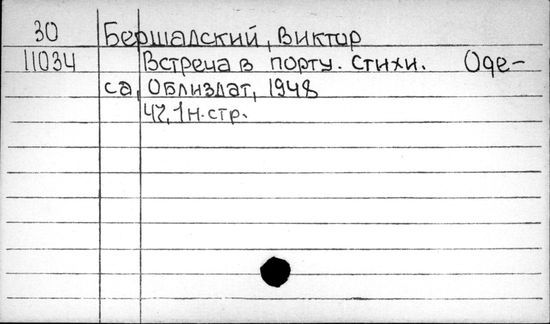 30 Бершадский, Виктор
11034 Встреча в порту. Стихи. Оде-
са, Облиздат, 1948
47, 1 н. стр.